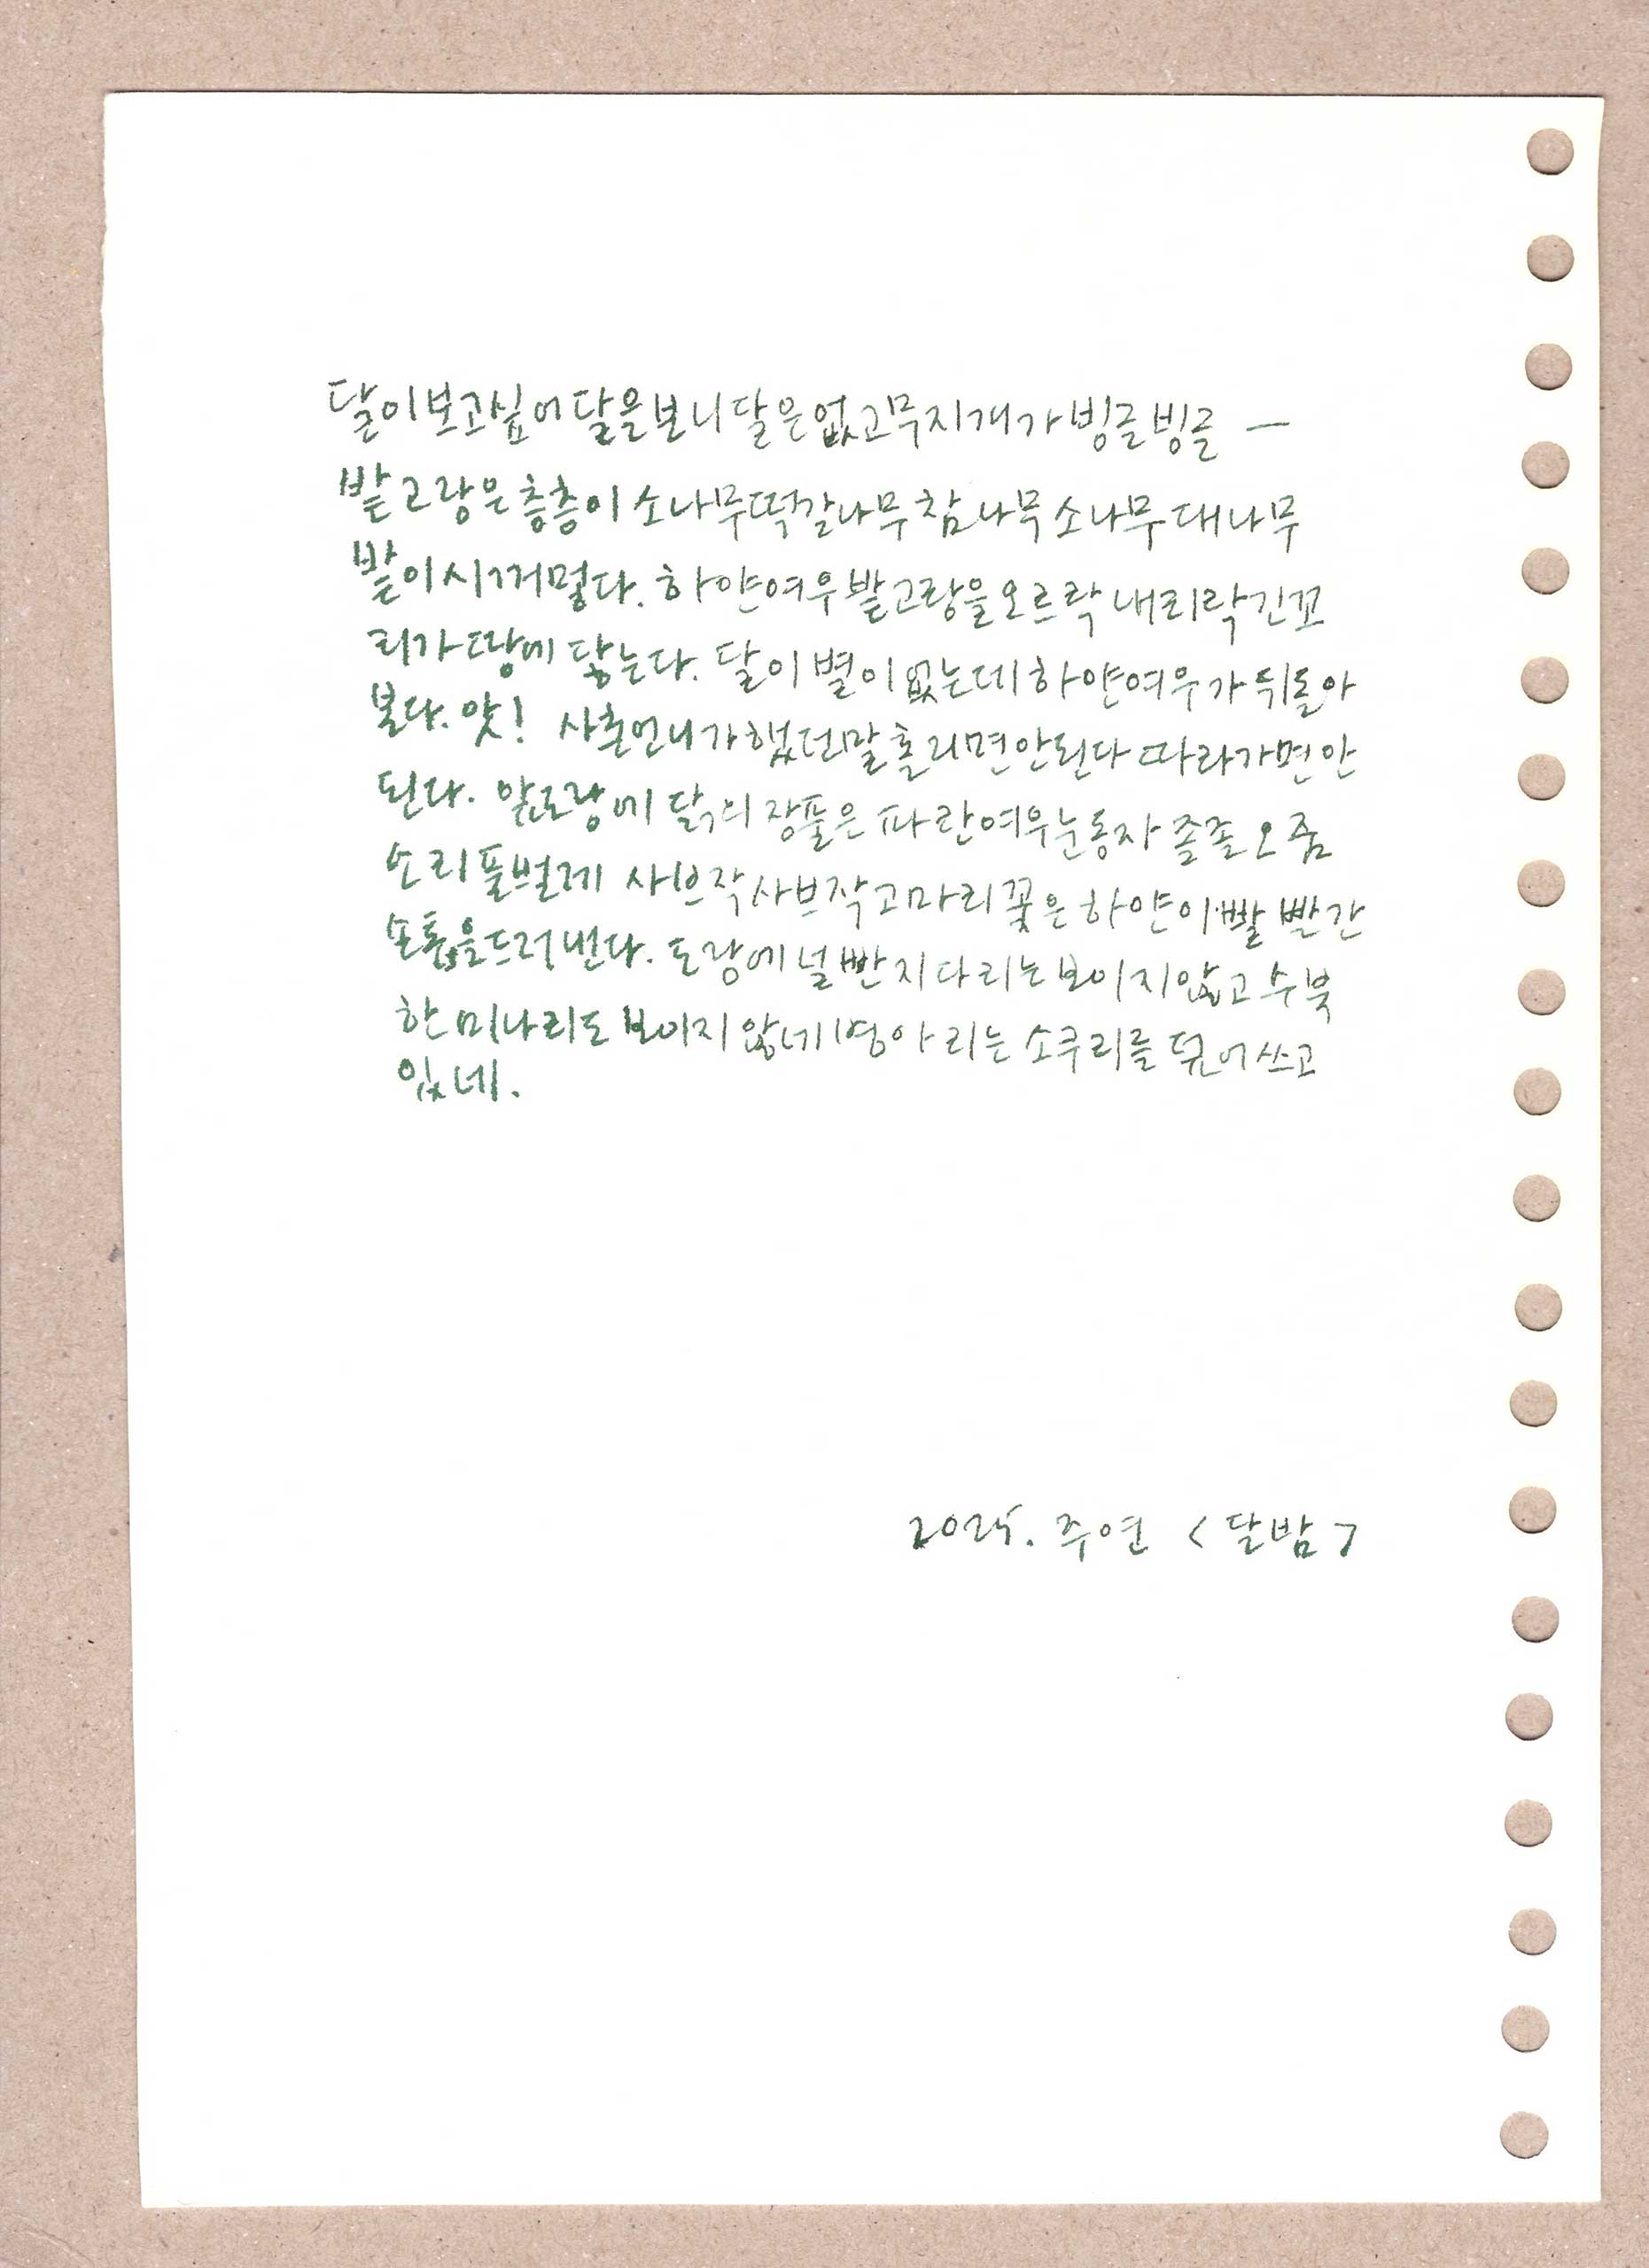 달이보고싶어달을보니달은없고무지개가빙글빙글 —
밭고랑은층층이소나무떡갈나무참나무소나무대나무
밭이시꺼멓다. 하얀여우밭고랑을오르락내리락긴꼬
리가땅에닿는다. 달이별이없는데하얀여우가뒤돌아
본다. 앗! 사촌언니가했던말홀리면안된다따라가면안
된다. 앞도랑에 닭의장풀은 파란여우눈동자 졸졸오줌
소리풀벌레 사브작사브작고마리꽃은하얀이빨빨간
손톱을드러낸다. 도랑에널빤지다리는보이지않고수북
한미나리도보이지않네영아리는소쿠리를뒤어쓰고
있네.
2025. 주연 <달밤>